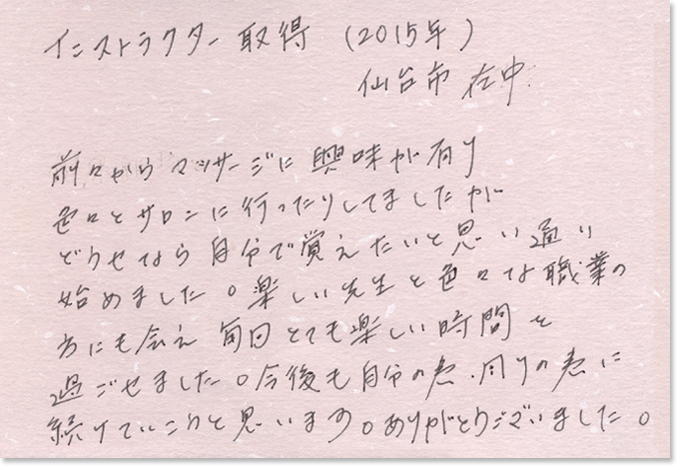 インストラクター取得 (2015年)
仙台市 在中
前々からマッサージに興味が有り
色々とサロンに行ったりしてましたが
どうせなら自分で覚えたいと思い通い
始めました。楽しい先生と色々な職業の
方にも会え毎日とても楽しい時間を
過ごせました。今後も自分の為、周りの為に
続けていこうと思います。ありがとうございました。